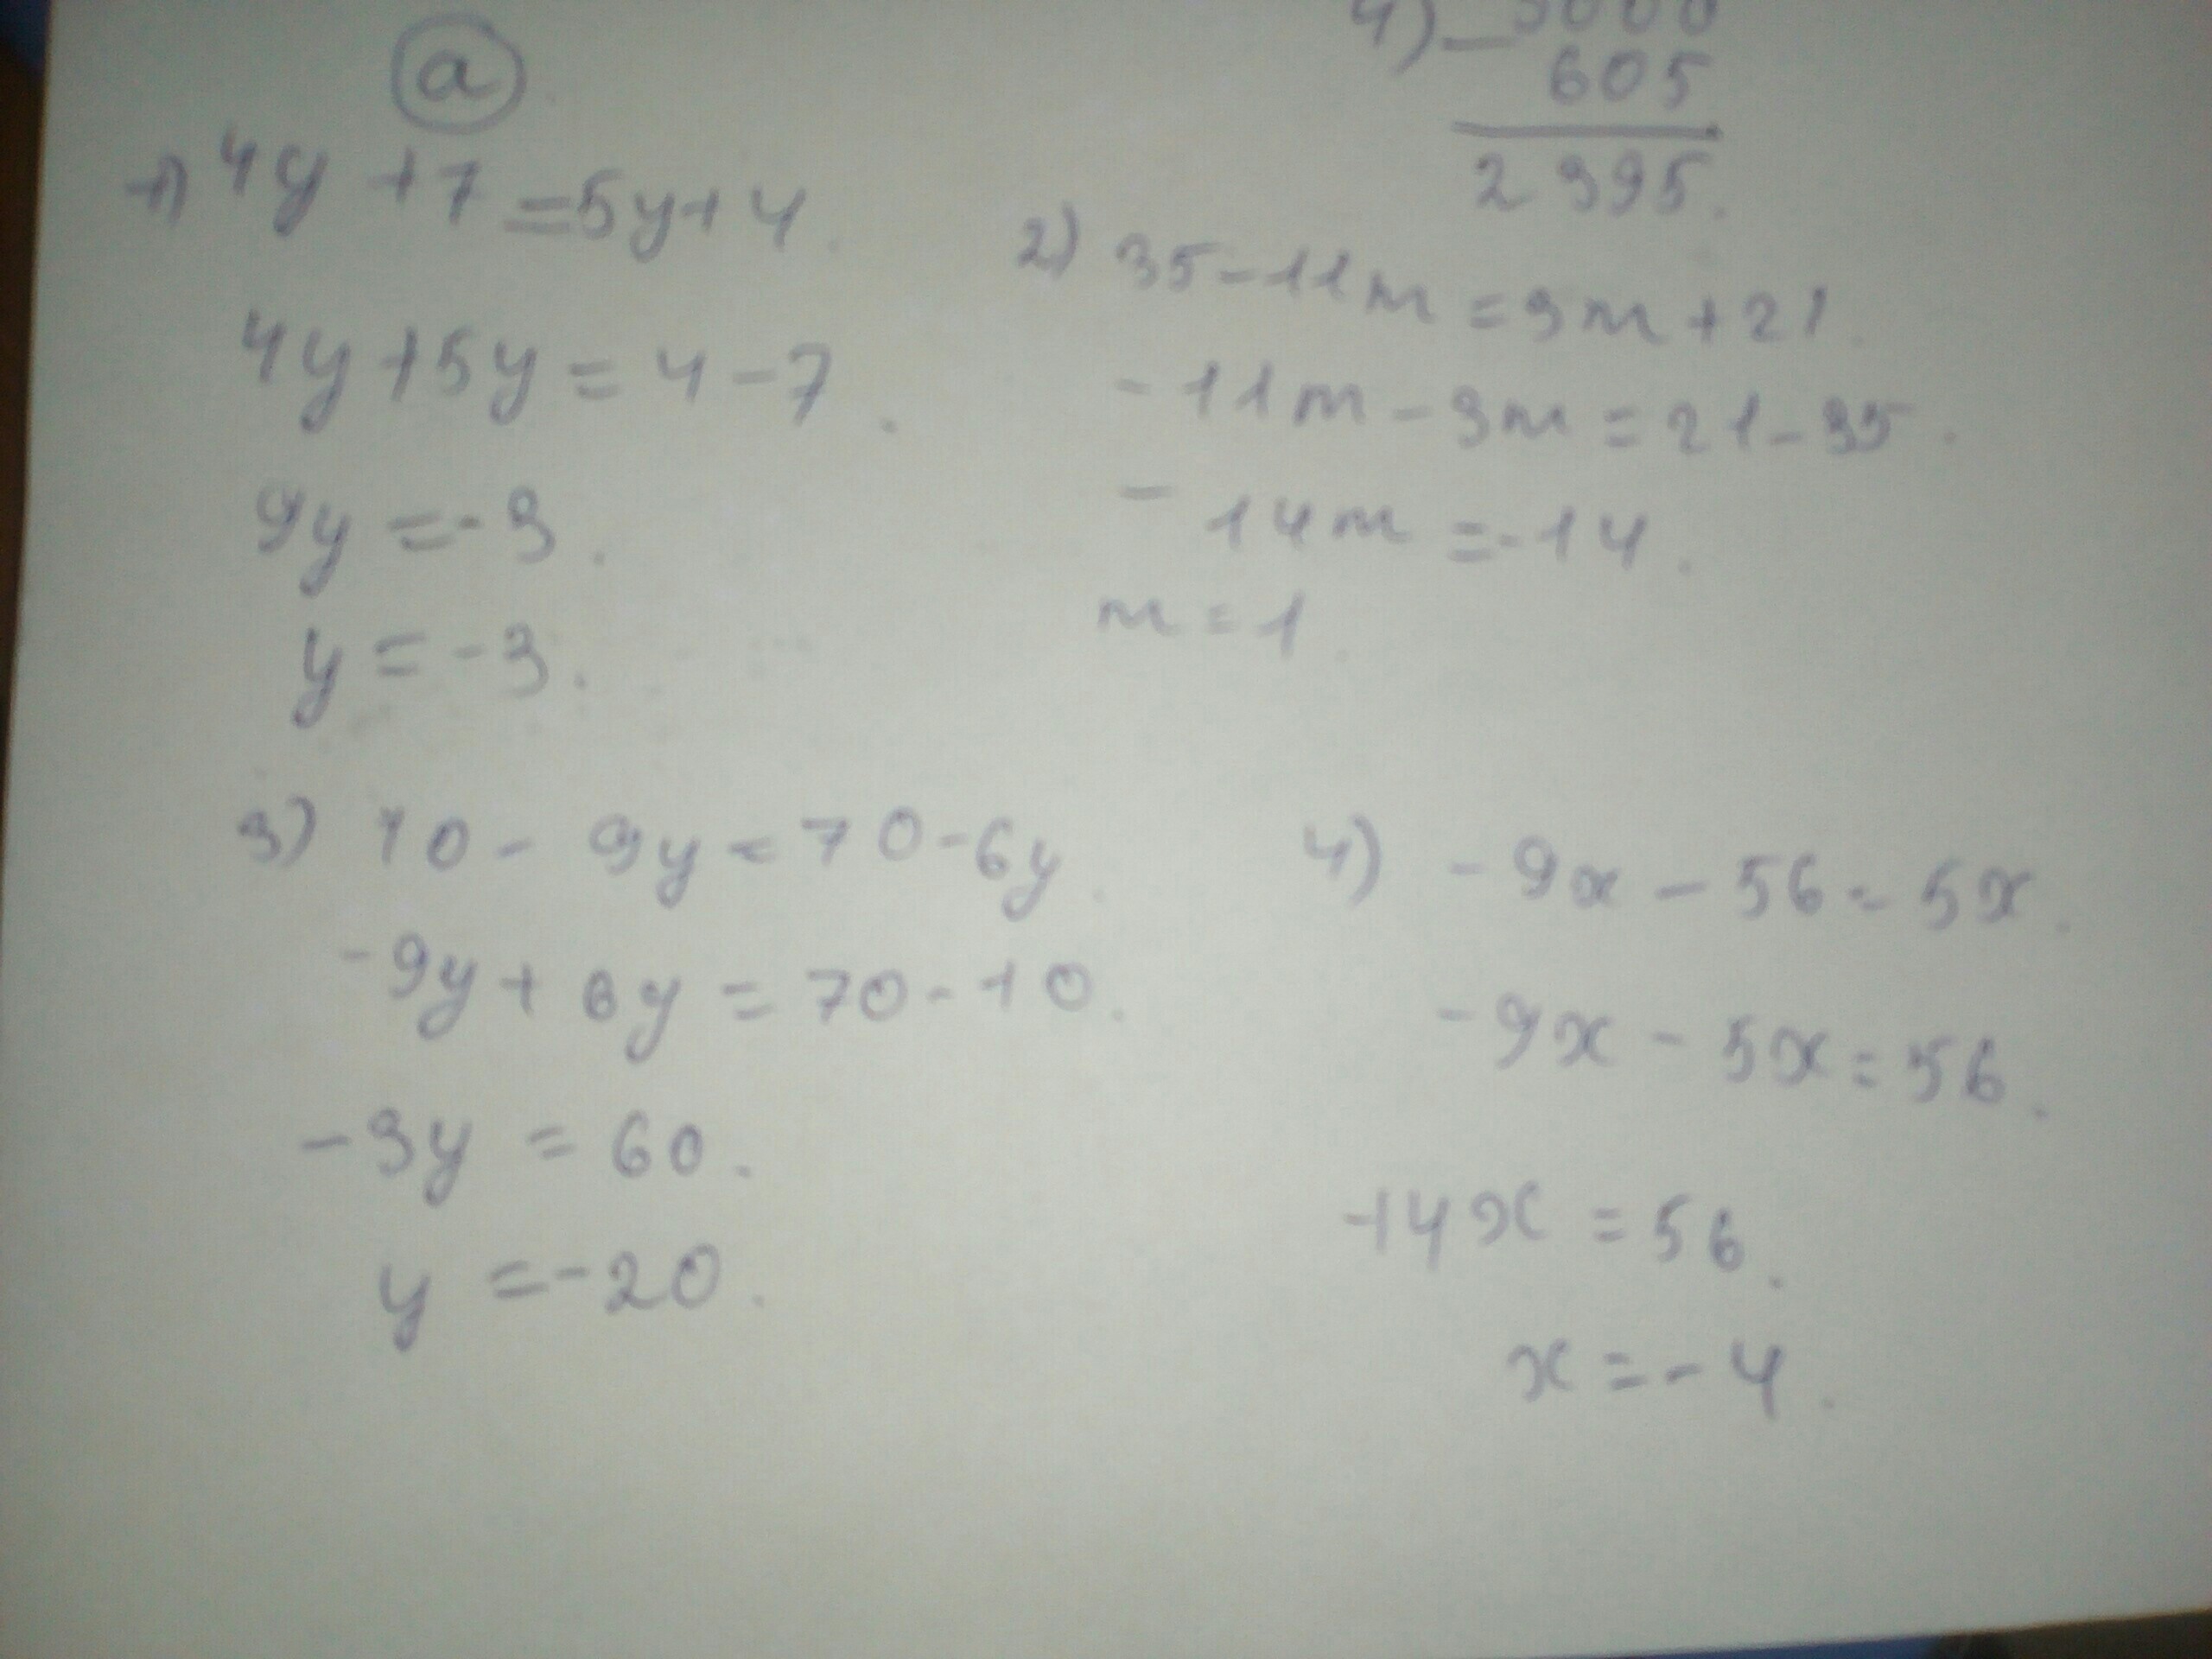 a
4) - 3000
605
2395.
1) 4y + 7 = 5y + 4.
4y + 5y = 4 - 7.
9y = - 3.
y = - 3.
2) 35 - 11m = 3m + 21.
- 11m - 3m = 21 - 35.
- 14m = - 14.
m = 1.
3) 10 - 9y = 70 - 6y.
- 9y + 6y = 70 - 10.
- 3y = 60.
y = - 20.
4) - 9x - 56 = 5x.
- 9x - 5x = 56.
- 14x = 56.
x = - 4.